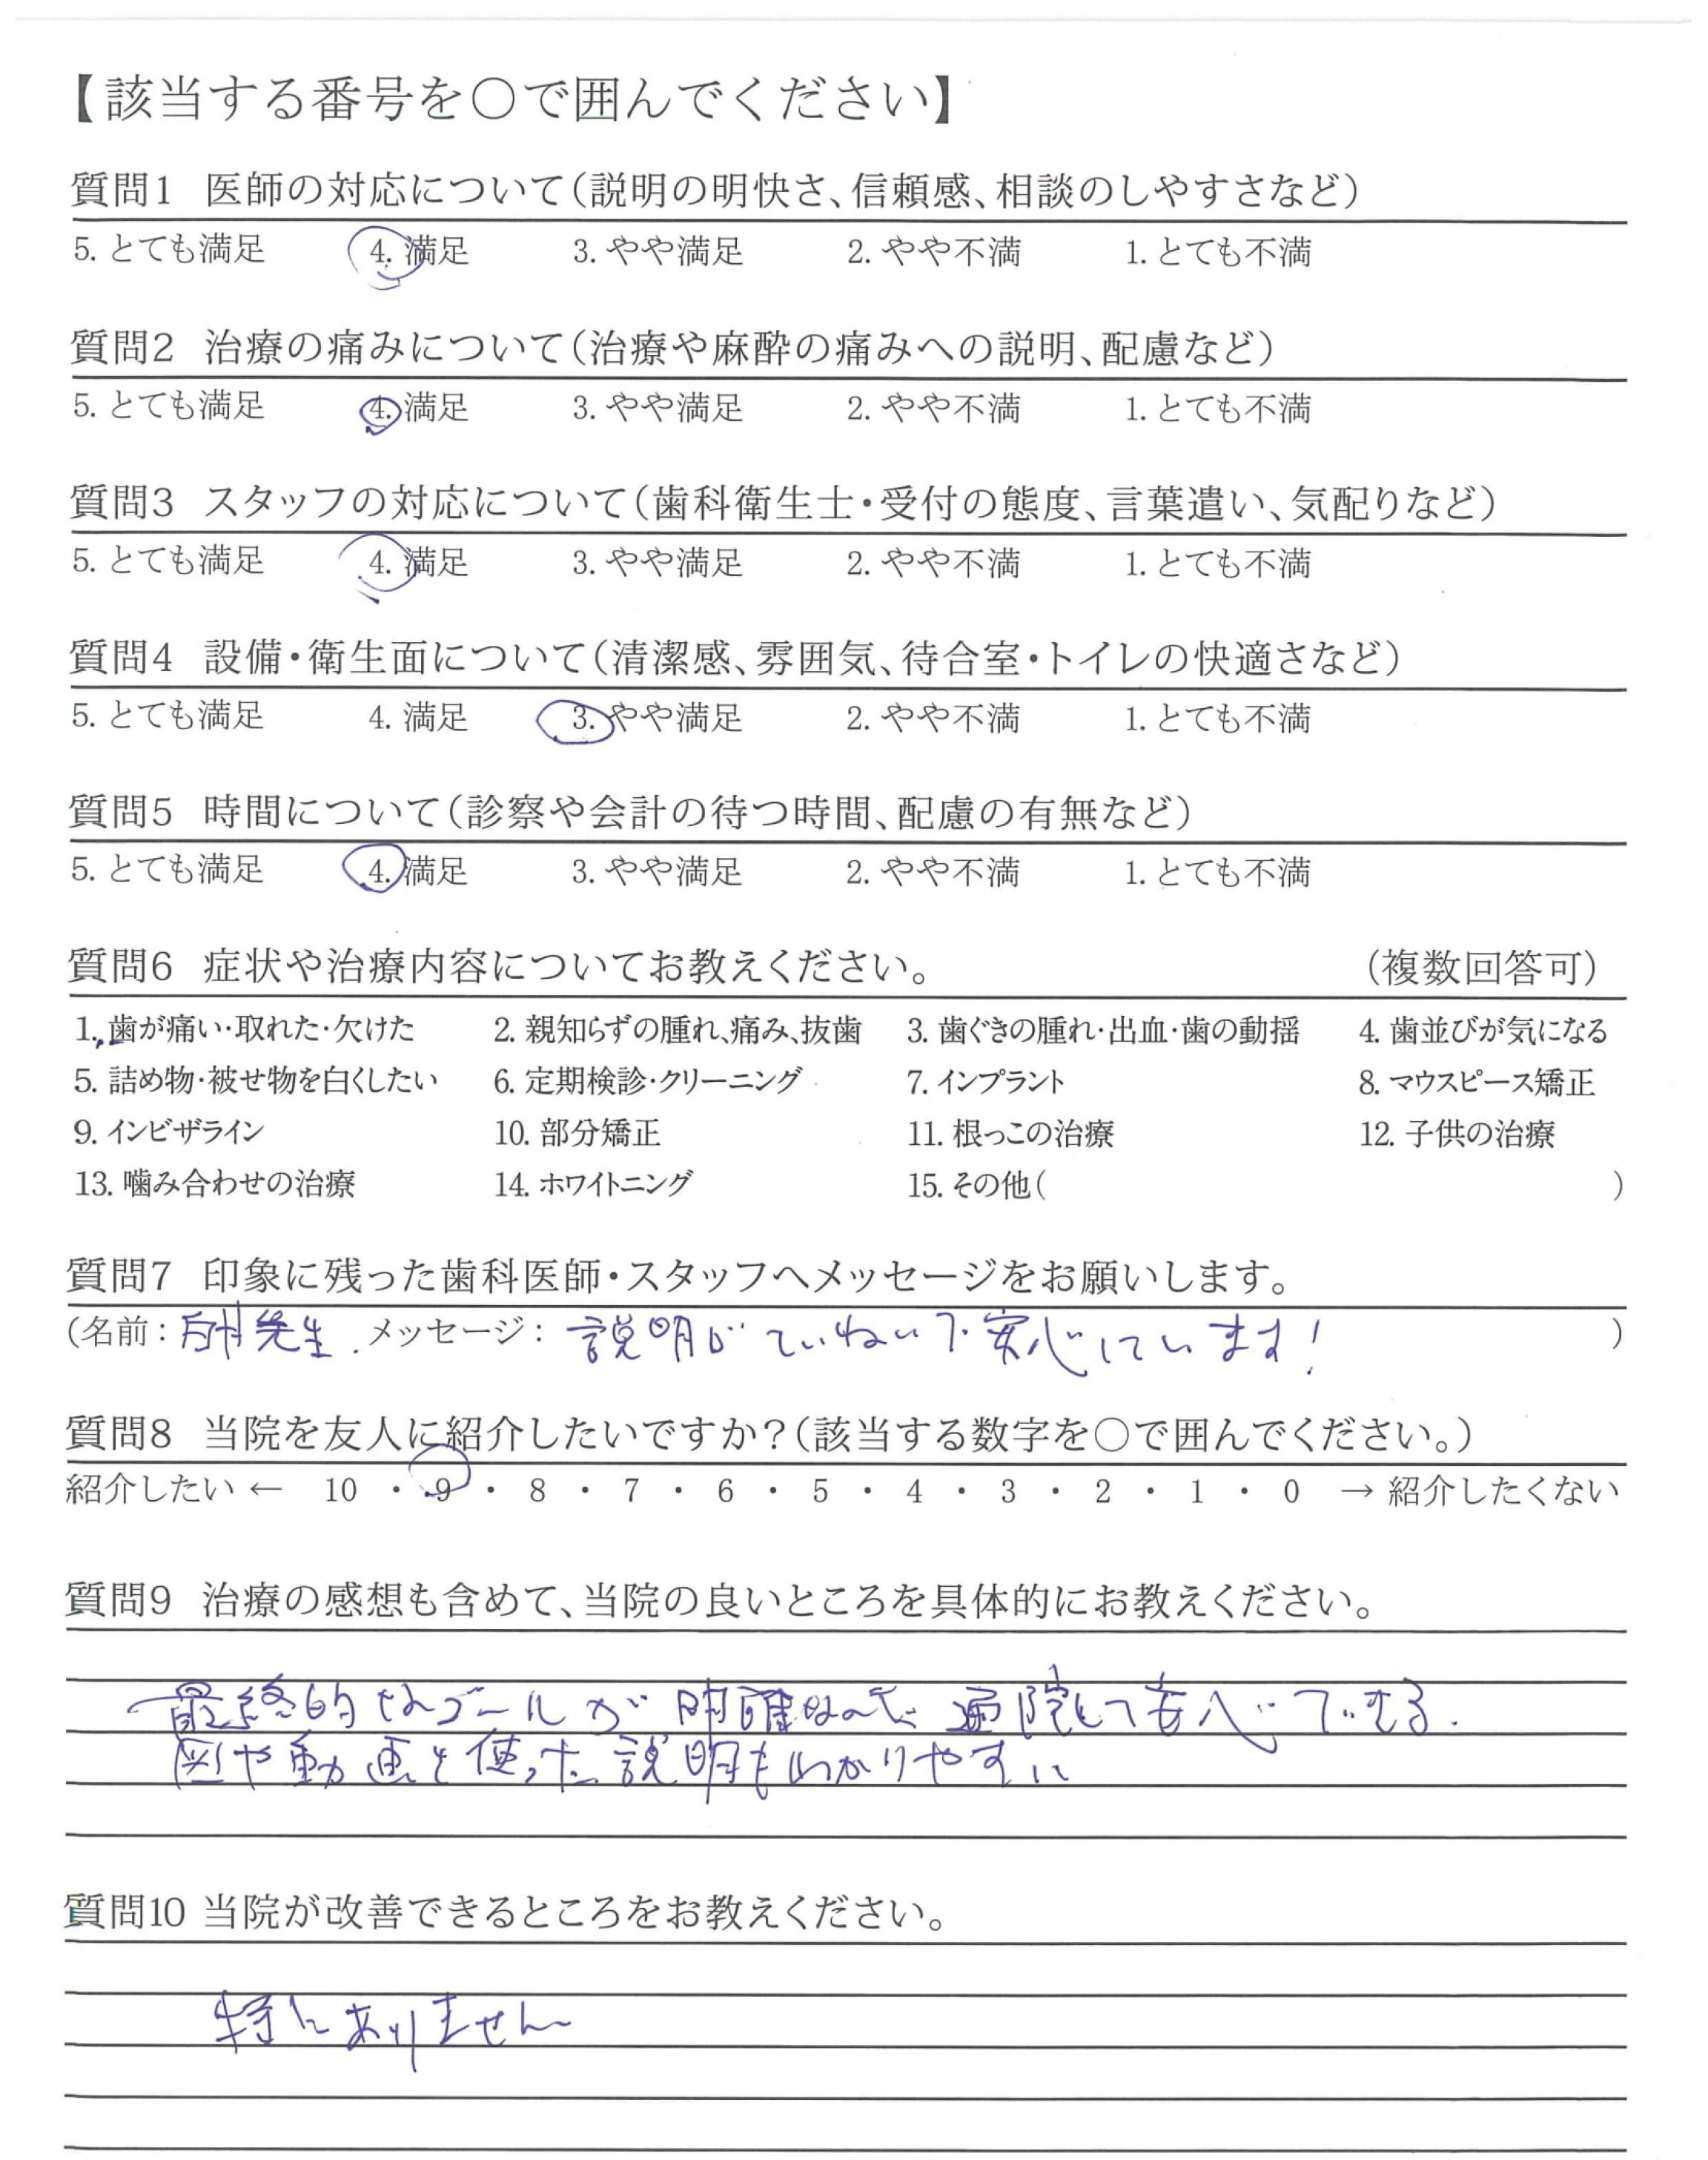 【該当する番号を〇で囲んでください】
質問1 医師の対応について(説明の明快さ、信頼感、相談のしやすさなど)
5. とても満足 4. 満足 3. やや満足 2. やや不満 1. とても不満
質問2 治療の痛みについて(治療や麻酔の痛みへの説明、配慮など)
5. とても満足 4. 満足 3. やや満足 2. やや不満 1. とても不満
質問3 スタッフの対応について(歯科衛生士・受付の態度、言葉遣い、気配りなど)
5. とても満足 4. 満足 3. やや満足 2. やや不満 1. とても不満
質問4 設備・衛生面について(清潔感、雰囲気、待合室・トイレの快適さなど)
5. とても満足 4. 満足 3. やや満足 2. やや不満 1. とても不満
質問5 時間について(診察や会計の待つ時間、配慮の有無など)
5. とても満足 4. 満足 3. やや満足 2. やや不満 1. とても不満
質問6 症状や治療内容についてお教えください。 (複数回答可)
1. 歯が痛い・取れた・欠けた 2. 親知らずの腫れ、痛み、抜歯 3. 歯ぐきの腫れ・出血・歯の動揺 4. 歯並びが気になる
5. 詰め物・被せ物を白くしたい 6. 定期検診・クリーニング 7. インプラント 8. マウスピース矯正
9. インビザライン 10. 部分矯正 11. 根っこの治療 12. 子供の治療
13. 噛み合わせの治療 14. ホワイトニング 15. その他( )
質問7 印象に残った歯科医師・スタッフへメッセージをお願いします。
(名前: 先生. メッセージ: 説明がていねいで安心しています! )
質問8 当院を友人に紹介したいですか?(該当する数字を〇で囲んでください。)
紹介したい ← 10 ・ 9 ・ 8 ・ 7 ・ 6 ・ 5 ・ 4 ・ 3 ・ 2 ・ 1 ・ 0 → 紹介したくない
質問9 治療の感想も含めて、当院の良いところを具体的にお教えください。
最終的なゴールが明確なので通院して安心できる.
図や動画を使った説明もわかりやすい
質問10 当院が改善できるところをお教えください。
特にありません